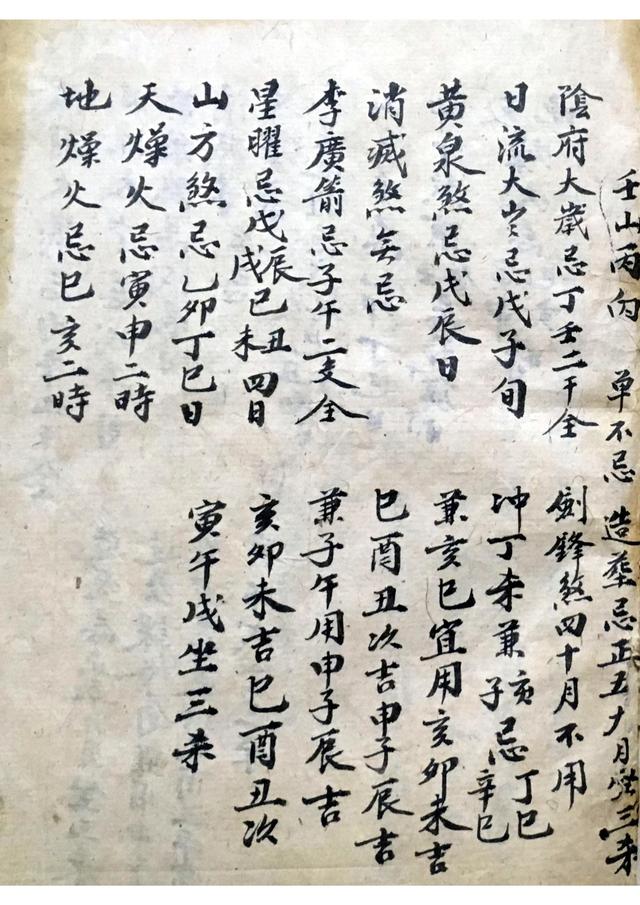 壬山丙向　单不忌　造塟忌正五九月坐三未
陰府大歲忌丁壬二干全
劍鋒煞四十月不用
日流大忌戊子旬
冲丁未兼亥子忌丁巳辛巳
黃泉煞忌戊辰日
兼亥巳宜用亥卯未吉
消滅煞無忌
巳酉丑次吉申子辰吉
李廣箭忌子午二支全
兼子午用申子辰吉
星曜忌戊辰戊戌己丑未四日
亥卯未吉巳酉丑次
山方煞忌乙卯丁巳日
寅午戌坐三未
天燥火忌寅申二時
地燥火忌巳亥二時